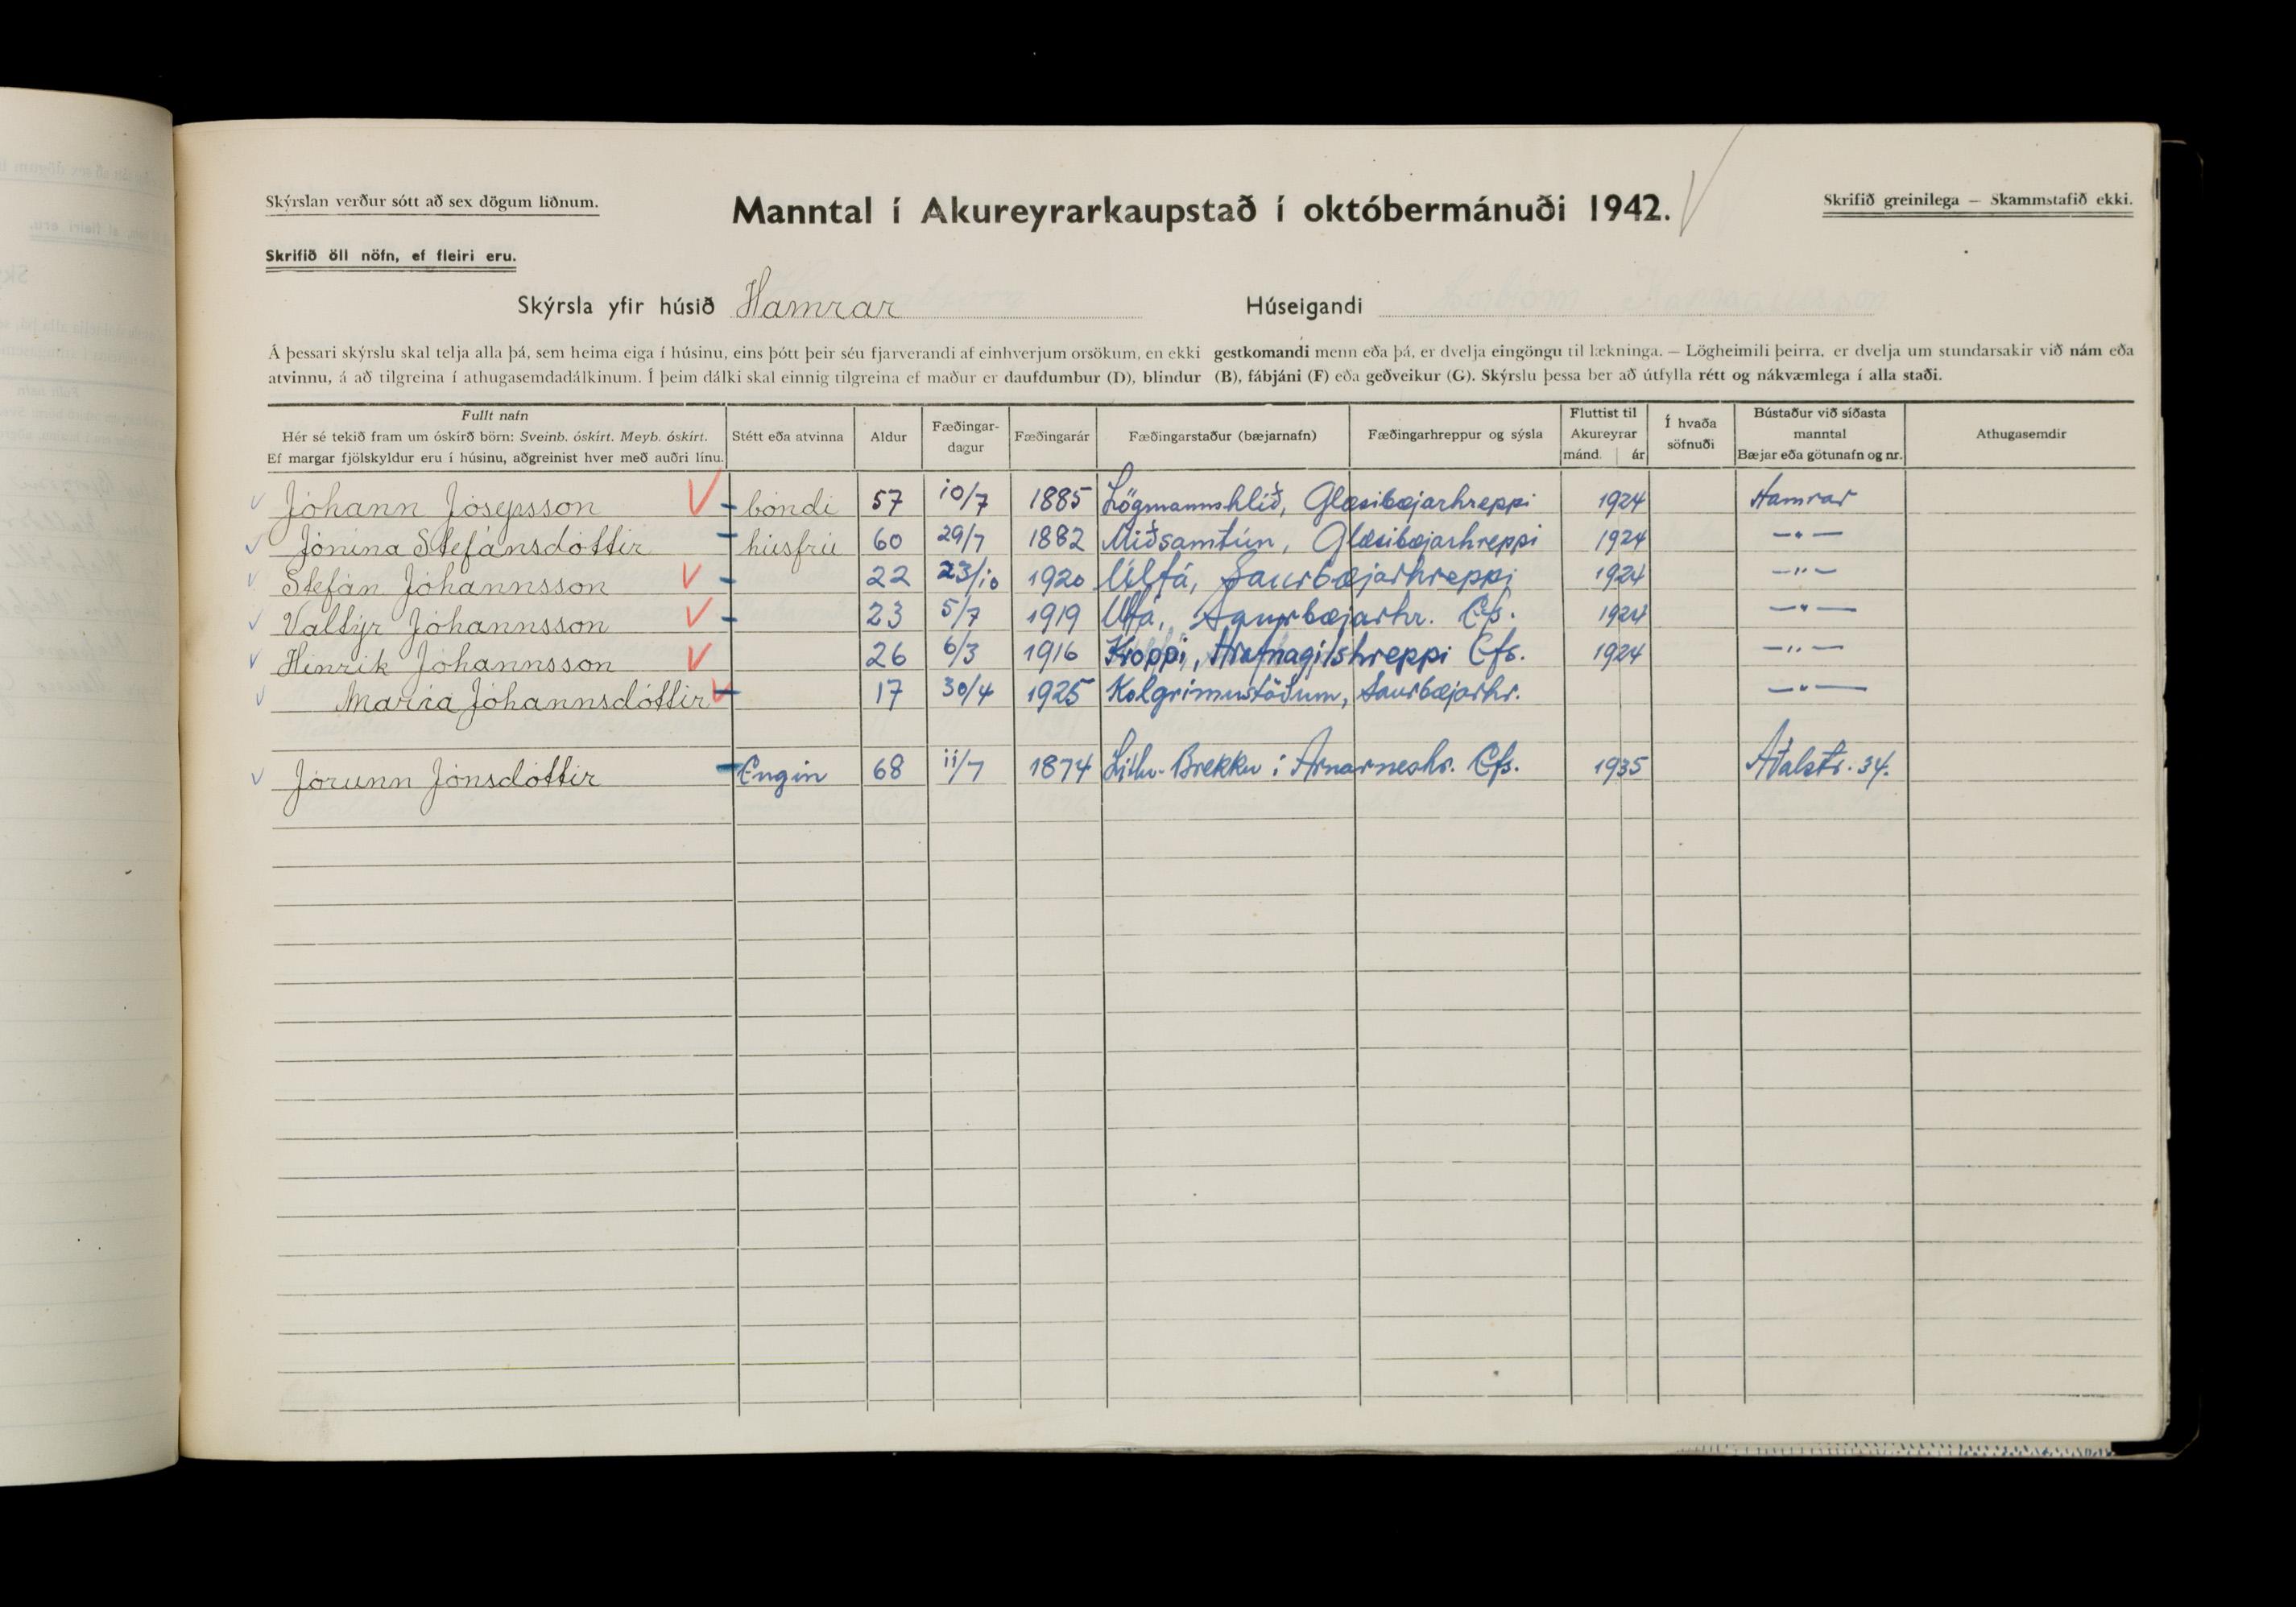 Skýrslan verður sótt að sex dögum liðnum.
Manntal í Akureyrarkaupstað í októbermánuði 1942.
Skrifið greinilega — Skammstafið ekki.
Skrifið öll nöfn, ef fleiri eru.
Skýrsla yfir húsið Hamrar Húseigandi
Á þessari skýrslu skal telja alla þá, sem heima eiga í húsinu, eins þótt þeir séu fjarverandi af einhverjum orsökum, en ekki gestkomandi menn eða þá, er dvelja eingöngu til lækninga. — Lögheimili þeirra, er dvelja um stundarsakir við nám eða
atvinnu, á að tilgreina í athugasemdadálkinum. Í þeim dálki skal einnig tilgreina ef maður er daufdumbur (D), blindur (B), fábjáni (F) eða geðveikur (G). Skýrslu þessa ber að útfylla rétt og nákvæmlega í alla staði.
Fullt nafn
Hér sé tekið fram um óskírð börn: Sveinb. óskírt. Meyb. óskírt.
Ef margar fjölskyldur eru í húsinu, aðgreinist hver með auðri línu.
Stétt eða atvinna
Aldur
Fæðingar-
dagur
Fæðingarár
Fæðingarstaður (bæjarnafn)
Fæðingarhreppur og sýsla
Fluttist til
Akureyrar
mánd. ár
Í hvaða
söfnuði
Bústaður við síðasta
manntal
Bæjar eða götunafn og nr.
Athugasemdir
Jóhann Jósepsson bóndi 57 10/7 1885 Lögmannshlíð, Glæsibæjarhreppi 1924 Hamrar
Jónína Stefánsdóttir húsfrú 60 29/7 1882 Miðsamtún, Glæsibæjarhreppi 1924 —"—
Stefán Jóhannsson 22 23/10 1920 Úlfá, Saurbæjarhreppi 1924 —"—
Valtýr Jóhannsson 23 5/7 1919 Úlfá, Saurbæjarhr. Efs. 1924 —"—
Hinrik Jóhannsson 26 6/3 1916 Kroppi, Hrafnagilshreppi Efs. 1924 —"—
María Jóhannsdóttir 17 30/4 1925 Kolgrímustöðum, Saurbæjarhr. —"—
Jórunn Jónsdóttir Engin 68 11/7 1874 Litlu-Brekku í Arnarneshr. Efs. 1935 Aðalstr. 34.